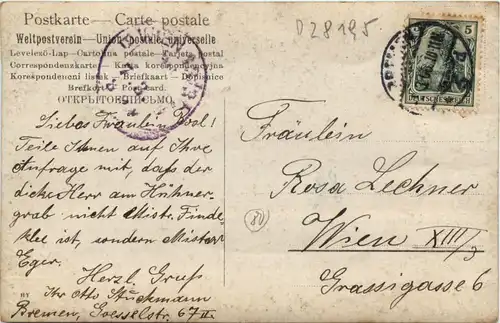 Postkarte — Carte postale
Weltpostverein — Union postale universelle
Levelező-Lap — Cartolina postale — Tarjeta postal
Correspondenzkarte — Karta korespondencyjna
Korespondenční lístek — Briefkaart — Dopisnice
Brefkort — Post card.
ОТКРЫТОЕ ПИСЬМО
D28195
5
DEUTSCHES REICH
Liebes Fräulein Rosl!
Teile Ihnen auf Ihre
Anfrage mit, daß der
dicke Herr am Hühner-
grab nicht Mistr. Finde
klee ist, sondern Mister
Eger.
Herzl. Gruß
Ihr Otto Stuckmann
Bremen, Soesselstr. 67 II.
Fräulein
Rosa Lechner
Wien XIII/3
Grassigasse 6
80